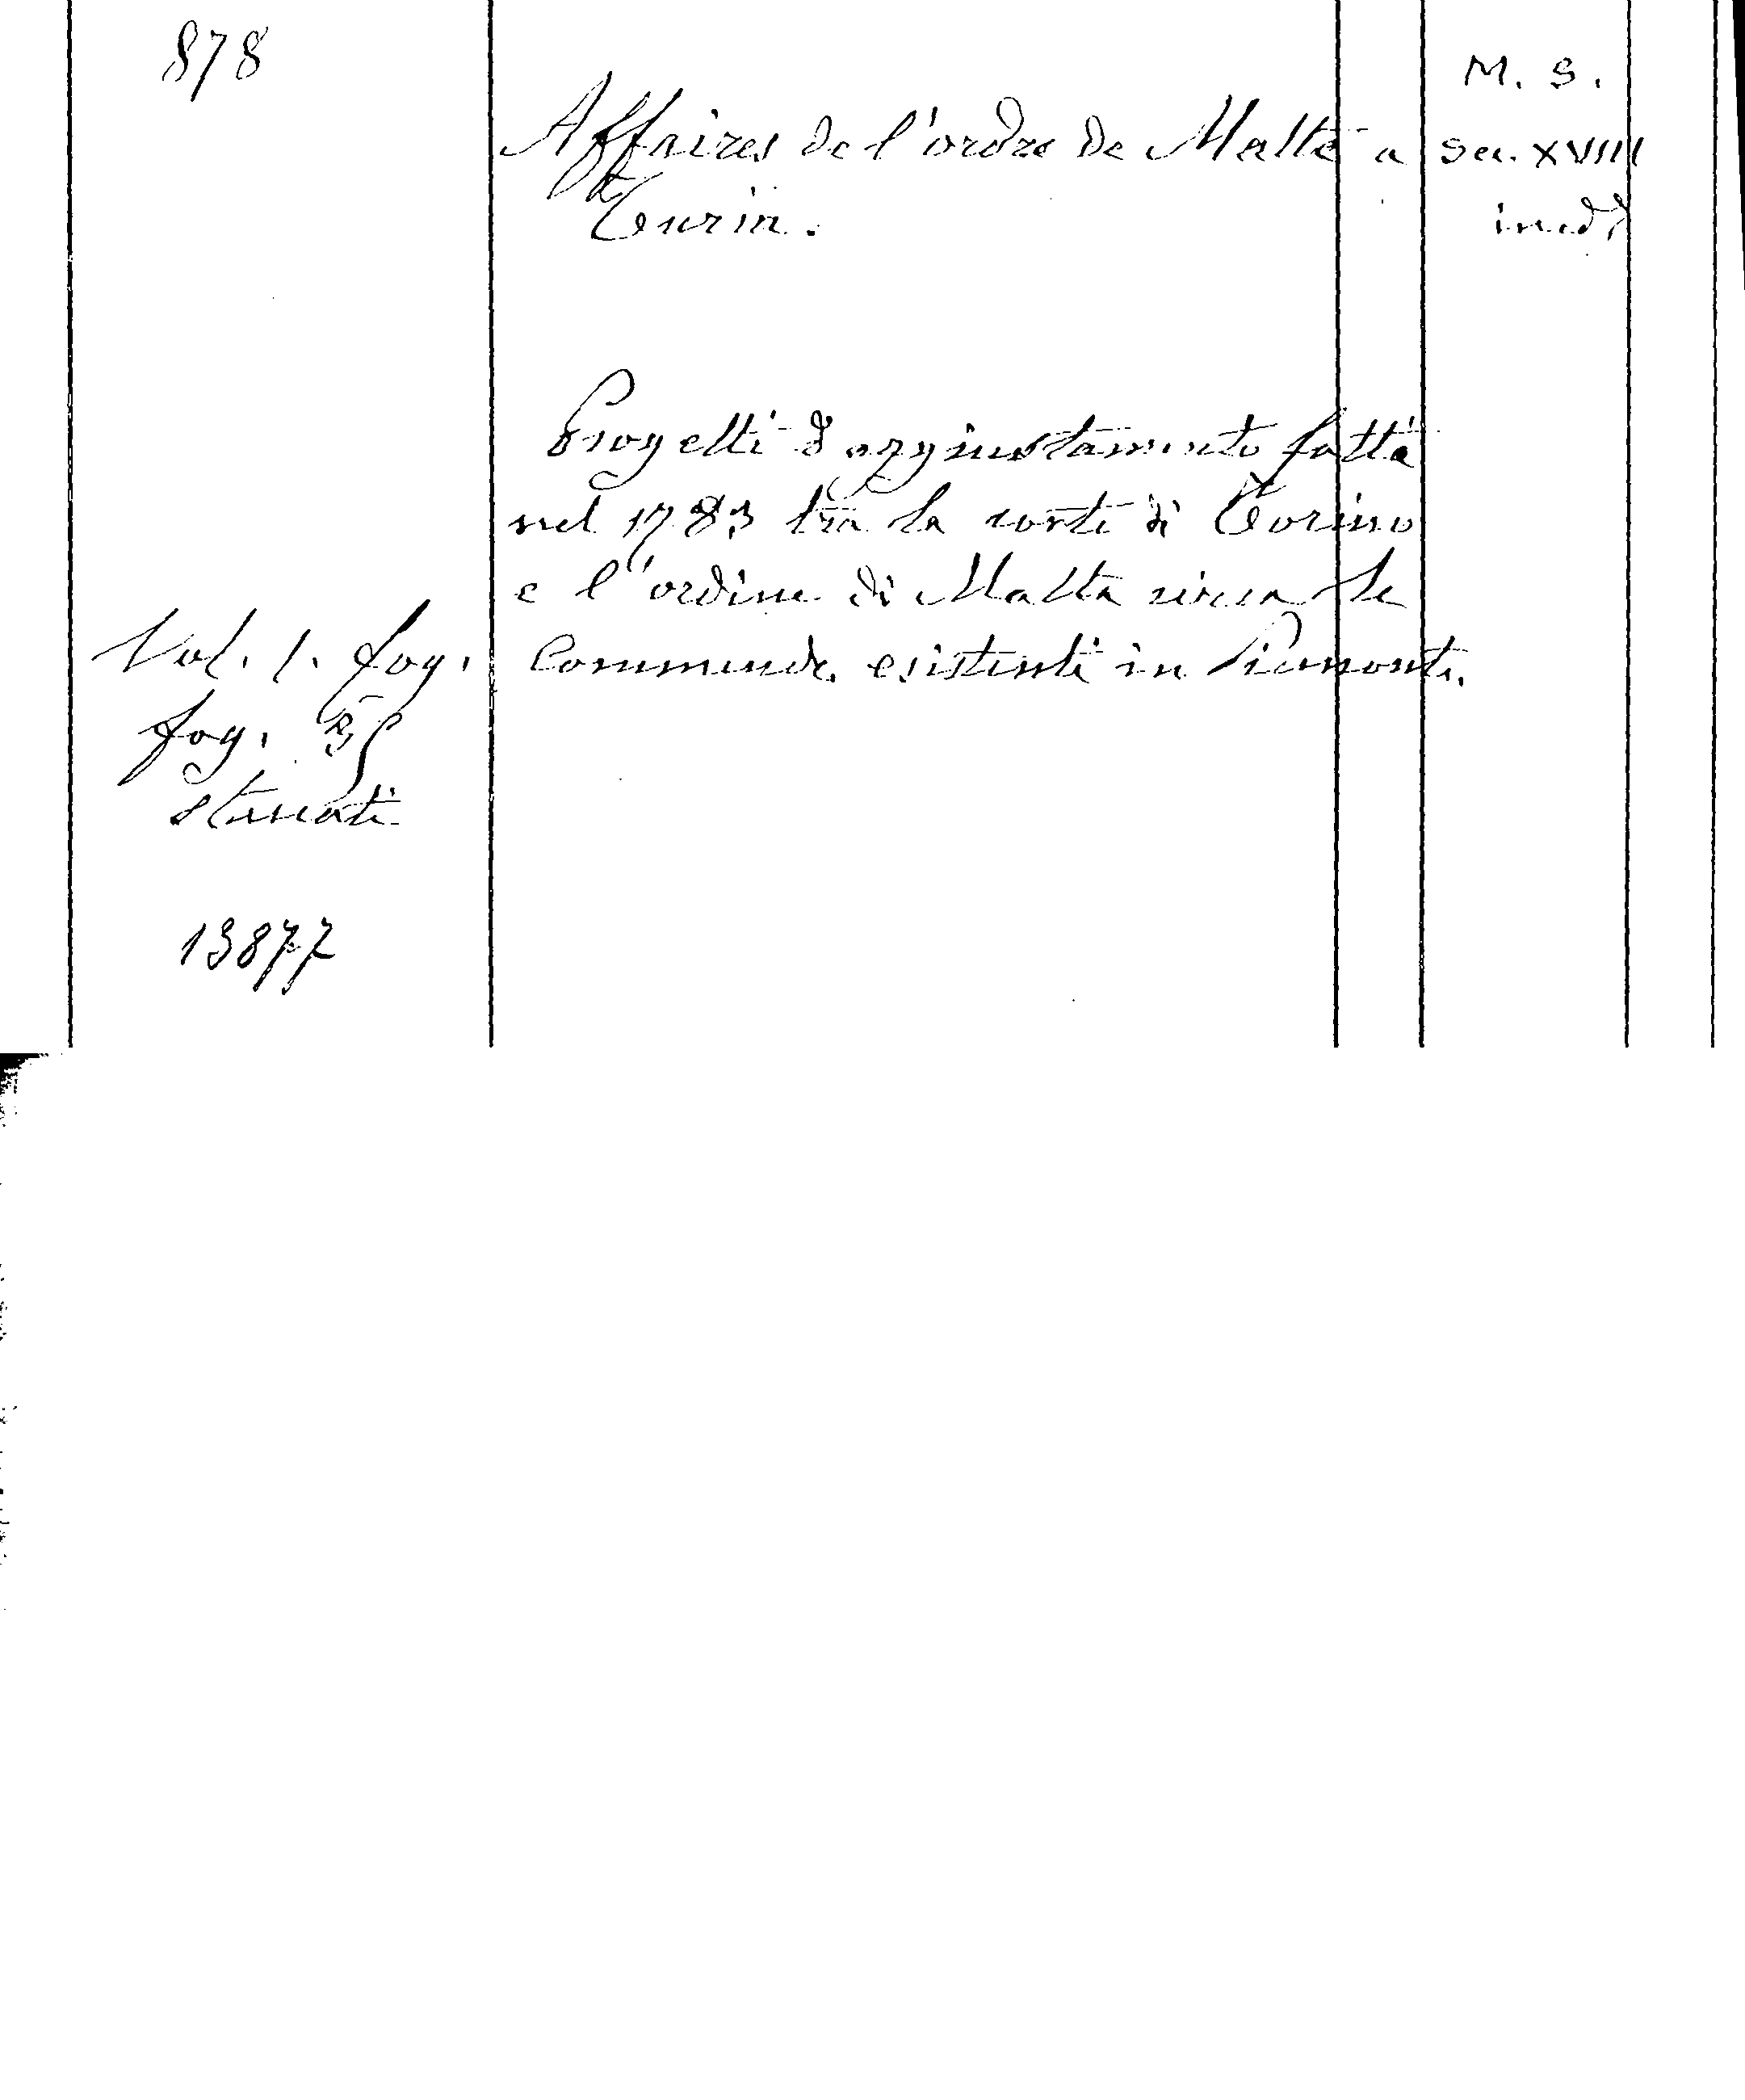 878
M. S.
Affaires de l'ordre de Malte a
sec. XVIII
Turin.
ined?
Progetti d'aggiustamento fatti
nel 1783 tra la corte di Torino
e l'ordine di Malta circa le
Vol. 1. fog.
Commende esistenti in Piemonte.
fog.
staccati
13877